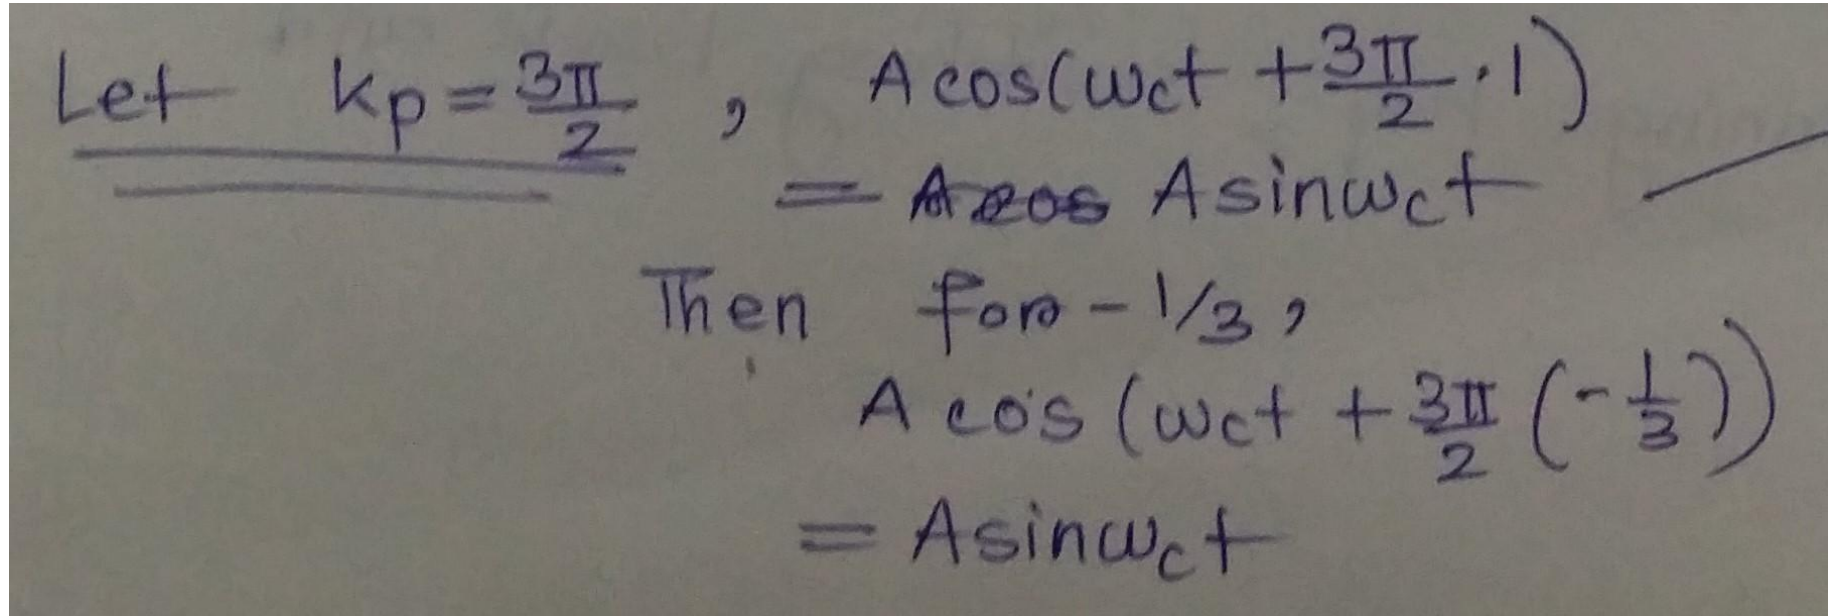 Let kp = 3π/2 , A cos(ωct + 3π/2 · 1)
= Acos A sinωct
Then for - 1/3 ,
A cos (ωct + 3π/2 (- 1/3))
= A sinωct